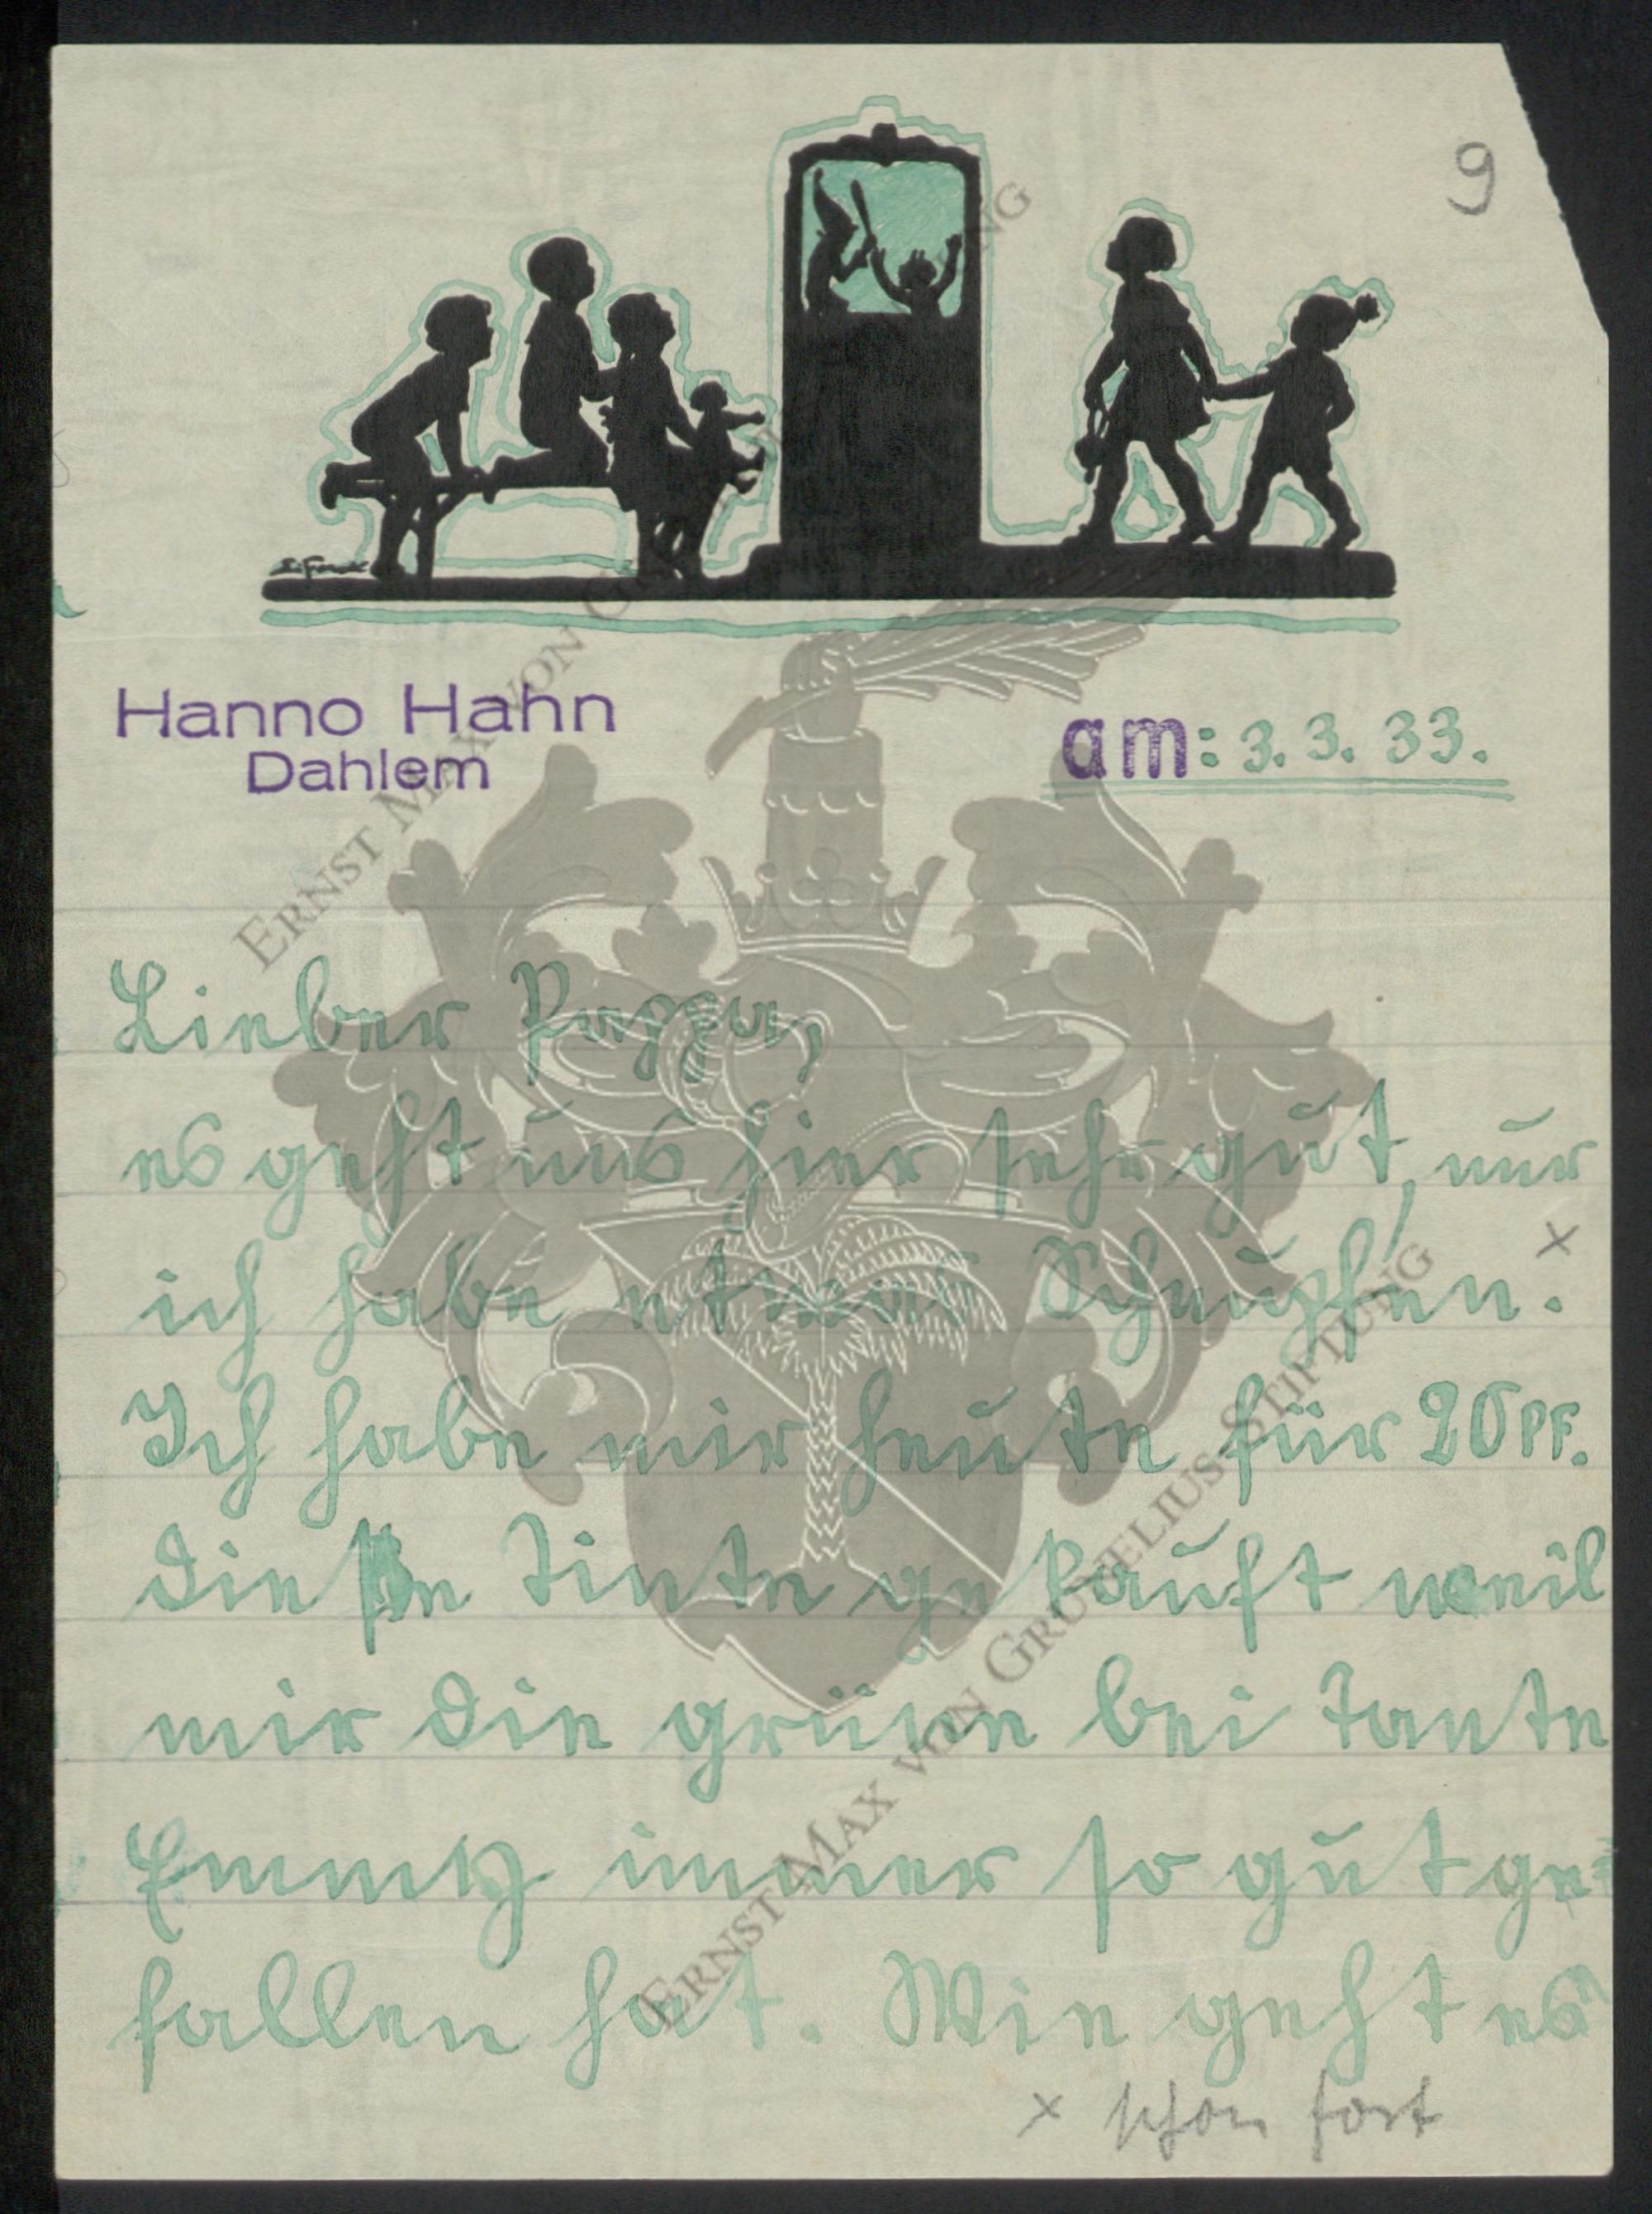 9
Hanno Hahn
Dahlem
am: 3. 3. 33.
Lieber Pappa,
es geht uns hier sehr gut, nur
ich habe etwas Schnupfen. x
Ich habe mir heute für 20 PF.
die ße Tinte gekauft weil
mir die grüne bei Tante
Emmy immer so gut ge=
fallen hat. Wie geht es
x schon fort
ERNST MAX VON GRUNELIUS-STIFTUNG
ERNST MAX VON GRUNELIUS-STIFTUNG